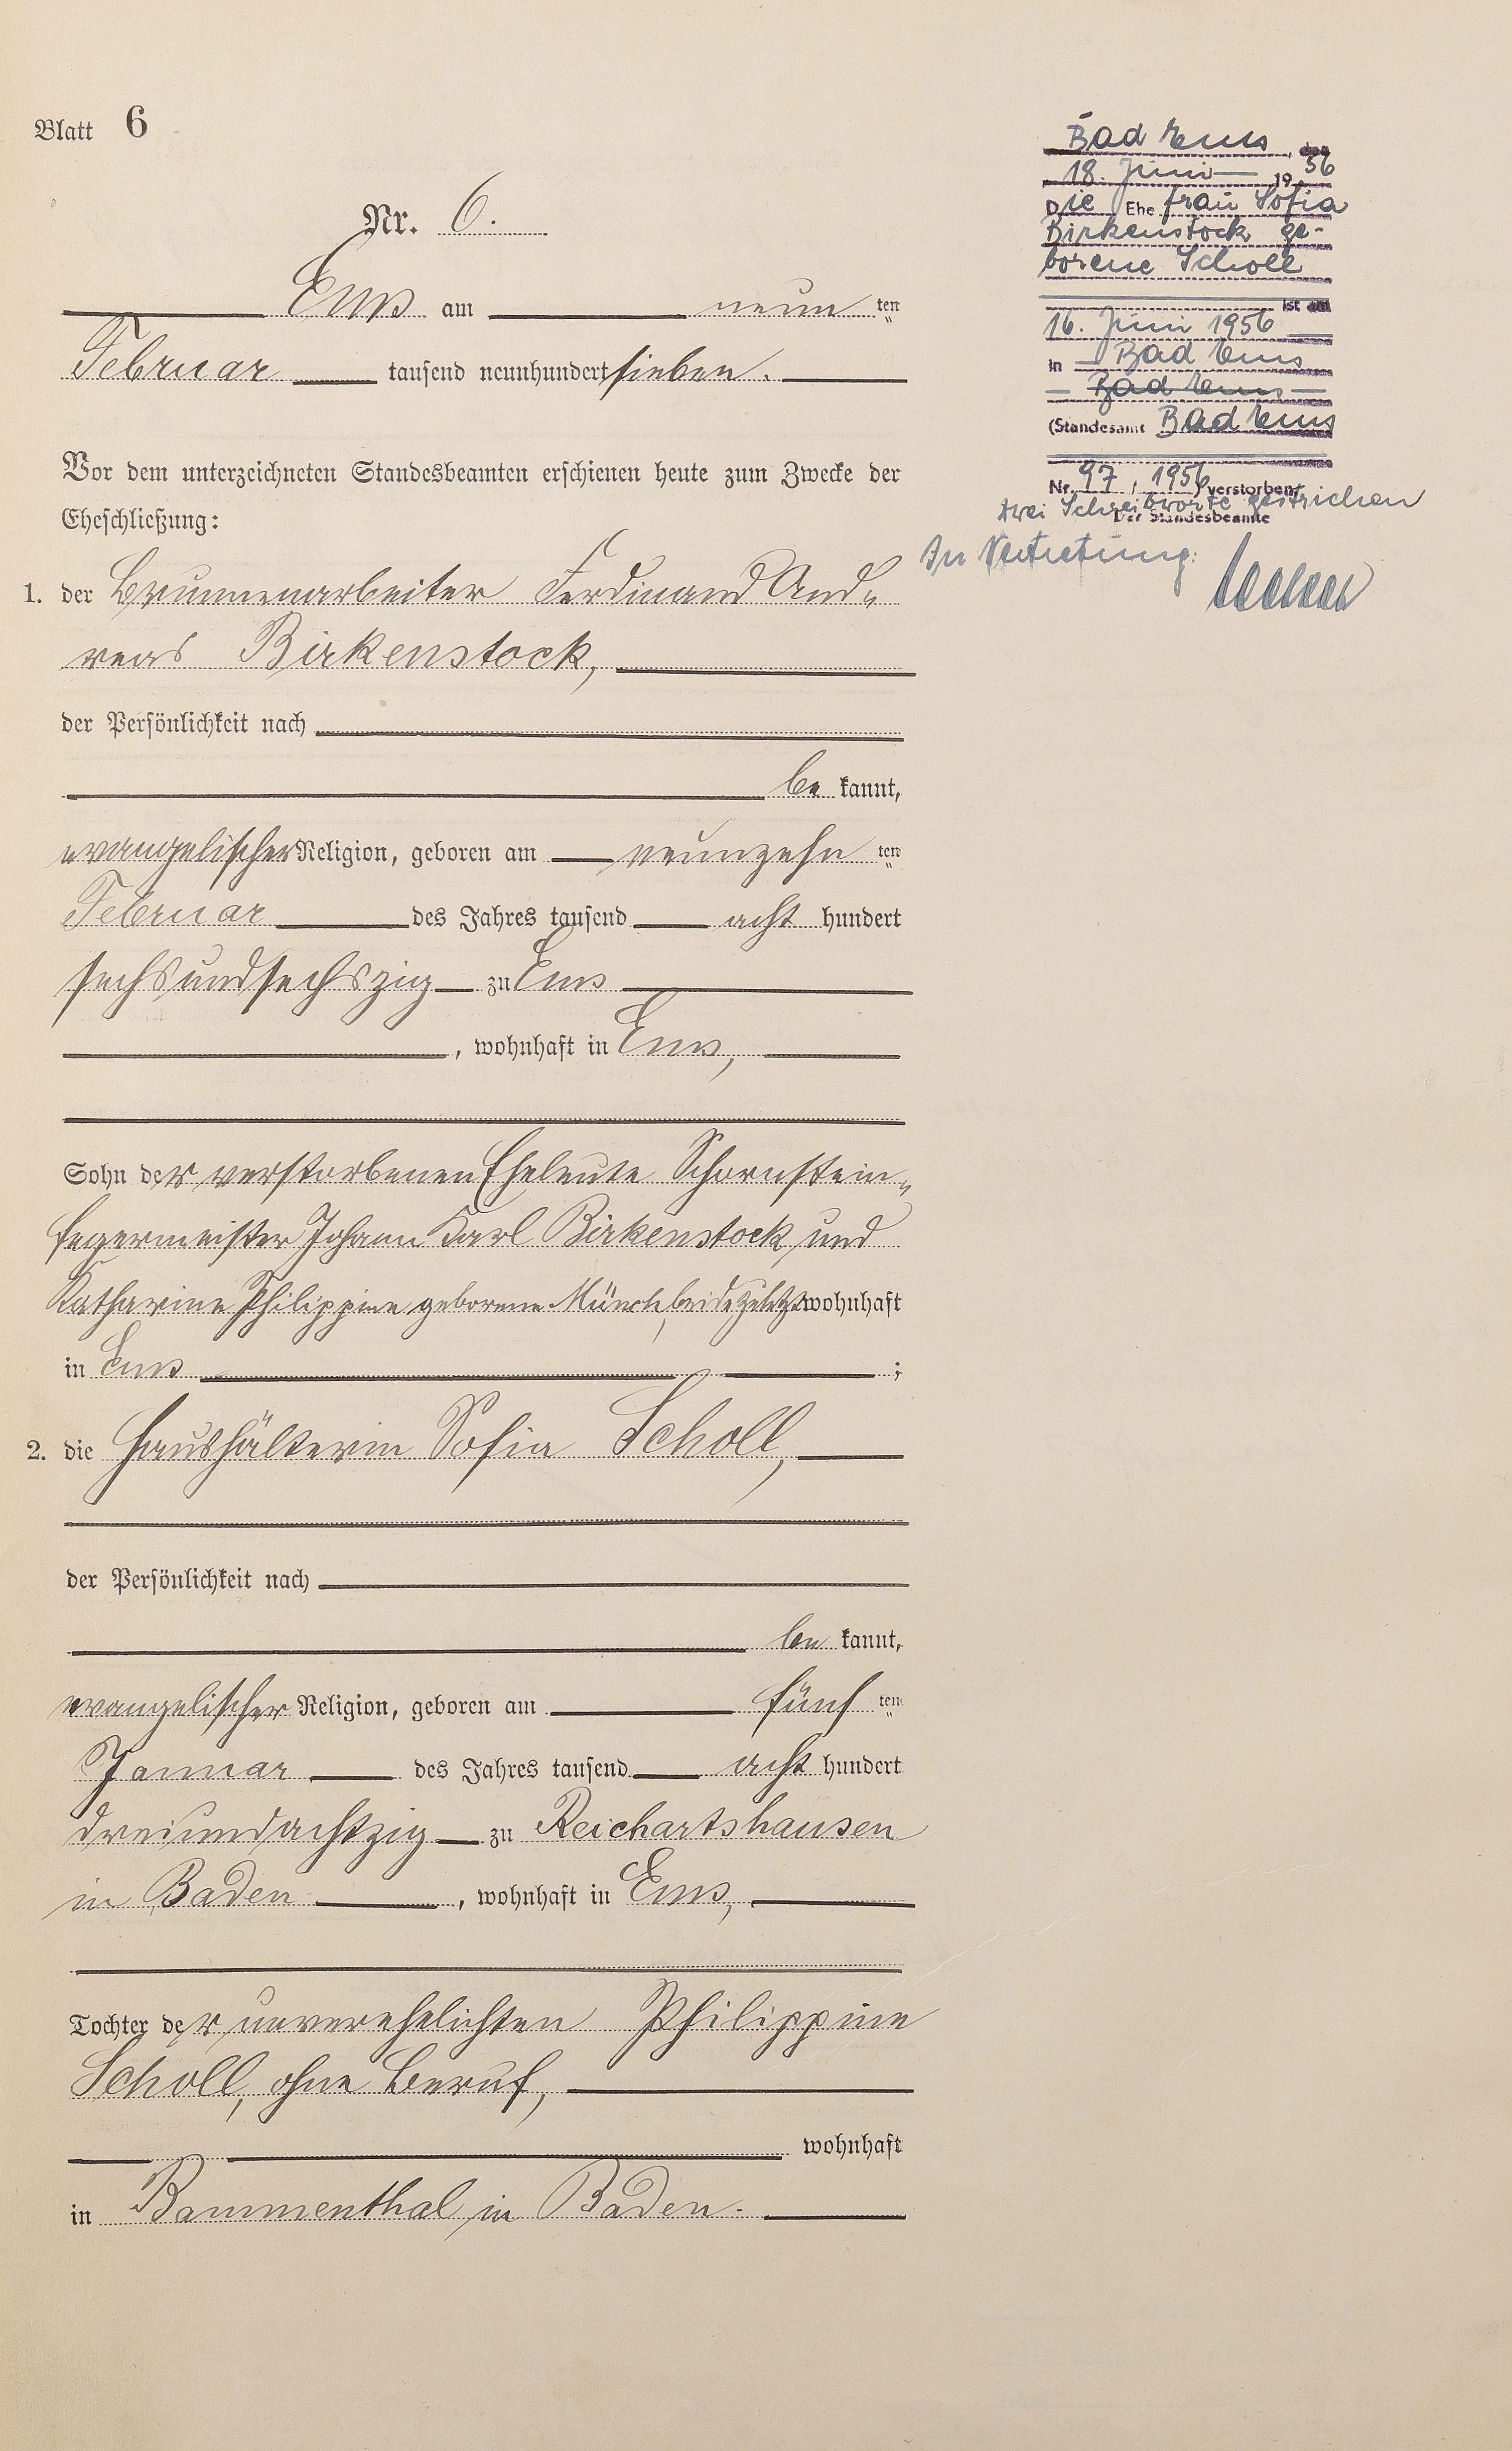 Blatt 6
Nr. 6.
Ems am neun ten
Februar tausend neunhundert sieben.
Vor dem unterzeichneten Standesbeamten erschienen heute zum Zwecke der
Eheschließung:
1. der Brunnenarbeiter Ferdinand And-
reas Birkenstock,
der Persönlichkeit nach
be kannt,
evangelischer Religion, geboren am neunzehn ten
Februar des Jahres tausend acht hundert
sechsundsechszig zu Ems
, wohnhaft in Ems,
Sohn der verstorbenen Eheleute Schornstein-
fegermeister Johann Karl Birkenstock und
Katharine Philippine geborene Münch, beide zuletzt wohnhaft
in Ems ;
2. die Haushälterin Sofia Scholl,
der Persönlichkeit nach
be kannt,
evangelischer Religion, geboren am fünf ten
Januar des Jahres tausend acht hundert
dreiundachtzig zu Reichartshausen
in Baden , wohnhaft in Ems,
Tochter der unverehelichten Philippine
Scholl, ohne Beruf,
wohnhaft
in Bammenthal in Baden.
Bad Ems, den
18. Juni 19 56
Die Ehe frau Sofia
Birkenstock ge-
borene Scholl
ist am
16. Juni 1956
in Bad Ems
Bad Ems
(Standesamt Bad Ems
Nr. 97, 1956) verstorben.
zwei Schreibworte gestrichen
Der Standesbeamte
In Vertretung: